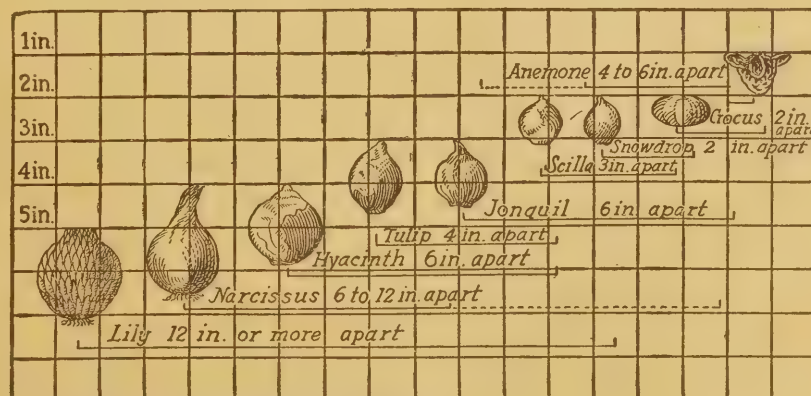 1in.
2in.
3in.
4in.
5in.
Anemone 4 to 6in. apart
Crocus 2in.
apart
Snowdrop 2 in. apart
Scilla 3in. apart
Jonquil 6in. apart
Tulip 4 in. apart
Hyacinth 6in. apart
Narcissus 6 to 12 in. apart
Lily 12 in. or more apart